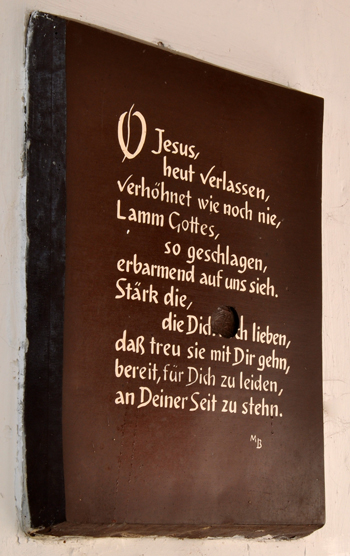 O Jesus,
heut verlassen,
verhöhnet wie noch nie,
Lamm Gottes,
so geschlagen,
erbarmend auf uns sieh.
Stärk die,
die Dich lieben,
daß treu sie mit Dir gehn,
bereit, für Dich zu leiden,
an Deiner Seit zu stehn.
MB